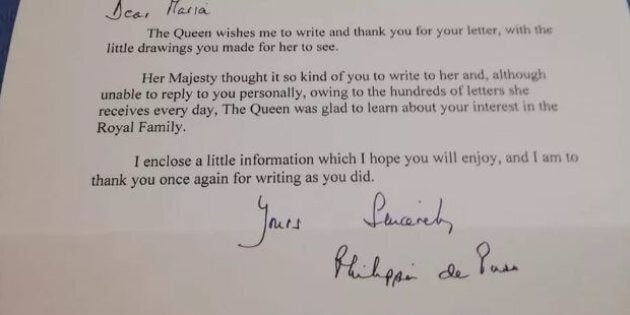 Dear Maria
The Queen wishes me to write and thank you for your letter, with the
little drawings you made for her to see.
Her Majesty thought it so kind of you to write to her and, although
unable to reply to you personally, owing to the hundreds of letters she
receives every day, The Queen was glad to learn about your interest in the
Royal Family.
I enclose a little information which I hope you will enjoy, and I am to
thank you once again for writing as you did.
Yours Sincerely
de